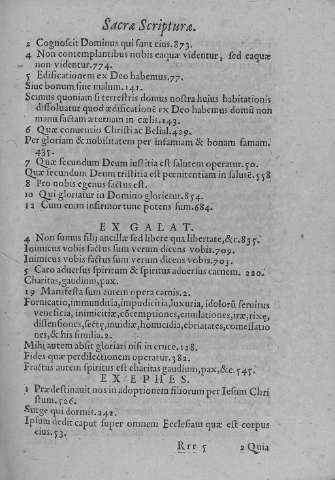 Sacræ Scripturæ.
2 Cognoscit Dominus qui sunt eius. 873.
4 Non contemplantibus nobis eaquæ videntur, sed eaquæ
non videntur. 774.
5 Edificationem ex Deo habemus. 77.
Siue bonum siue malum. 141.
Scimus quoniam si terrestris domus nostra huius habitationis
dissoluatur quod ædificationē ex Deo habemus domū non
manu factam æternam in cælis. 143.
6 Quæ conuentio Christi ac Belial. 429.
Per gloriam & nobilitatem per infamiam & bonam famam.
435.
7 Quæ secundum Deum iustitia est salutem operatur. 50.
Quæ secundum Deum tristitia est pœnitentiam in salutē. 558
8 Pro nobis egenus factus est.
10 Qui gloriatur in Domino glorietur. 854.
12 Cum enim infirmor tunc potens sum. 684.
EX GALAT.
4 Non sumus filij ancillæ sed libere qua libertate, &c. 835.
Inimicus vobis factus sum verum dicens vobis. 709.
Inimicus vobis factus sum verum dicens vobis. 703.
5 Caro aduersus spiritum & spiritus aduersus carnem. 220.
Charitas, gaudium, pax.
19 Manifesta sunt autem opera carnis. 2.
Fornicatio, immunditia, impudicitia, luxuria, idolorū seruitus
veneficia, inimicitiæ, cōtemptiones, emulationes, iræ, rixę,
dissensiones, sectę, inuidiæ, homicidia, ebriatates, comessatio
nes, & his similia. 2.
Mihi autem absit gloriari nisi in cruce. 128.
Fides quæ perdilectionem operatur. 382.
Fructus autem spiritus est charitas gaudium, pax, &c. 545.
EX EPHES.
1 Prædestinauit nos in adoptionem filiorum per Iesum Chri
stum. 526.
Surge qui dormis. 242.
Ipsum dedit caput super omnem Ecclesiam quæ est corpus
eius. 53.
Rrr 5 2 Quia